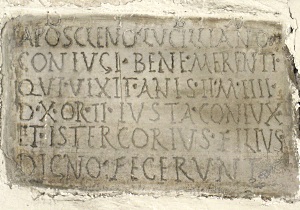 APOSCLENO·LUCILLIANO
CONIUGI·BENE·MERENTI
QUI·VIXIT·ANIS·II·M·IIII
D·X·OR·II·IUSTA·CONIUX·
ET·ISTERCORIUS·FILIUS
DIGNO·FECERUNT